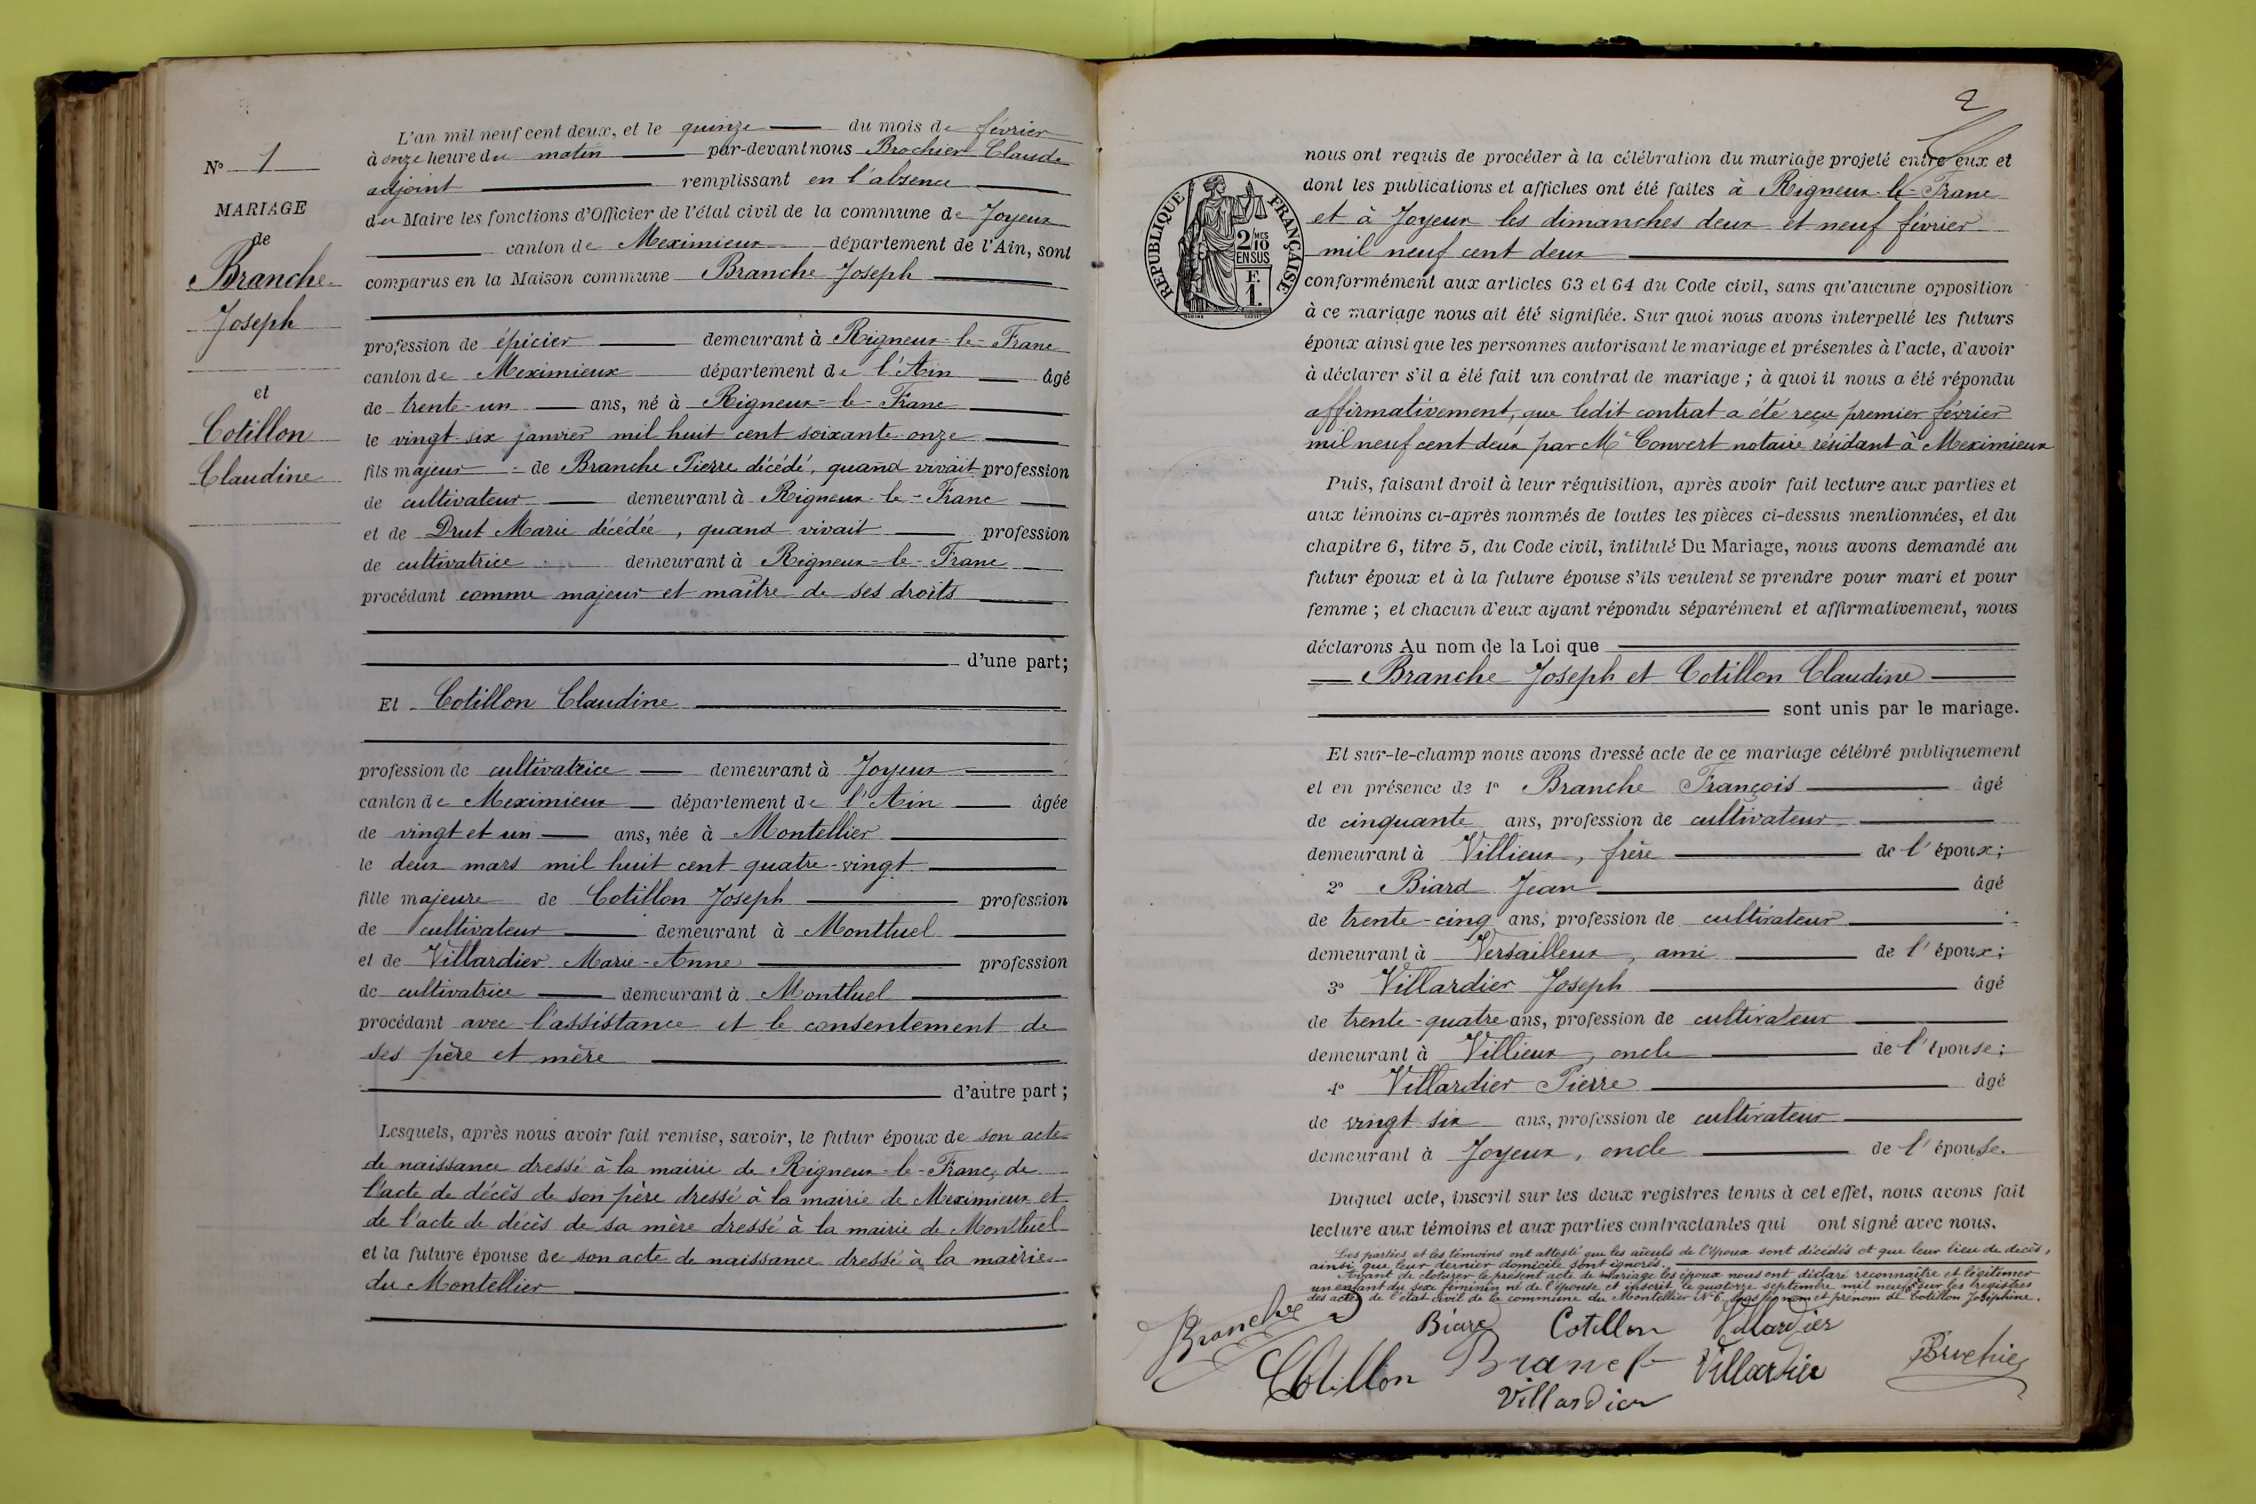 N° 1
MARIAGE
de
Branche
Joseph
et
Cotillon
Claudine
L'an mil neuf cent deux, et le quinze du mois de février
à onze heure du matin par-devant nous Brochier Claude
adjoint remplissant en l'absence
du Maire les fonctions d'Officier de l'état civil de la commune de Joyeux
canton de Meximieux département de l'Ain, sont
comparus en la Maison commune Branche Joseph
profession de épicier demeurant à Rigneux-le-Franc
canton de Meximieux département de l'Ain âgé
de trente-un ans, né à Rigneux-le-Franc
le vingt-six janvier mil huit cent soixante-onze
fils majeur de Branche Pierre décédé, quand vivait profession
de cultivateur demeurant à Rigneux-le-Franc
et de Drut Marie décédée, quand vivait profession
de cultivatrice demeurant à Rigneux-le-Franc
procédant comme majeur et maître de ses droits
d'une part;
Et Cotillon Claudine
profession de cultivatrice demeurant à Joyeux
canton de Meximieux département de l'Ain âgée
de vingt et un ans, née à Montellier
le deux mars mil huit cent quatre-vingt
fille majeure de Cotillon Joseph profession
de cultivateur demeurant à Montluel
et de Villardier Marie-Anne profession
de cultivatrice demeurant à Montluel
procédant avec l'assistance et le consentement de
ses père et mère
d'autre part;
Lesquels, après nous avoir fait remise, savoir, le futur époux de son acte
de naissance dressé à la mairie de Rigneux-le-Franc, de
l'acte de décès de son père dressé à la mairie de Meximieux et
de l'acte de décès de sa mère dressé à la mairie de Montluel
et la future épouse de son acte de naissance dressé à la mairie
du Montellier
2
RÉPUBLIQUE FRANÇAISE
2 MES 10
EN SUS
F.
1.
nous ont requis de procéder à la célébration du mariage projeté entre eux et
dont les publications et affiches ont été faites à Rigneux-le-Franc
et à Joyeux les dimanches deux et neuf février
mil neuf cent deux
conformément aux articles 63 et 64 du Code civil, sans qu'aucune opposition
à ce mariage nous ait été signifiée. Sur quoi nous avons interpellé les futurs
époux ainsi que les personnes autorisant le mariage et présentes à l'acte, d'avoir
à déclarer s'il a été fait un contrat de mariage; à quoi il nous a été répondu
affirmativement, que ledit contrat a été reçu premier février
mil neuf cent deux par Me Convert notaire résidant à Meximieux
Puis, faisant droit à leur réquisition, après avoir fait lecture aux parties et
aux témoins ci-après nommés de toutes les pièces ci-dessus mentionnées, et du
chapitre 6, titre 5, du Code civil, intitulé Du Mariage, nous avons demandé au
futur époux et à la future épouse s'ils veulent se prendre pour mari et pour
femme; et chacun d'eux ayant répondu séparément et affirmativement, nous
déclarons Au nom de la Loi que
Branche Joseph et Cotillon Claudine
sont unis par le mariage.
Et sur-le-champ nous avons dressé acte de ce mariage célébré publiquement
et en présence de 1° Branche François âgé
de cinquante ans, profession de cultivateur
demeurant à Villieux, frère de l'époux;
2° Biard Jean âgé
de trente-cinq ans, profession de cultivateur
demeurant à Versailleux, ami de l'époux;
3° Villardier Joseph âgé
de trente-quatre ans, profession de cultivateur
demeurant à Villieux, oncle de l'épouse;
4° Villardier Pierre âgé
de vingt six ans, profession de cultivateur
demeurant à Joyeux, oncle de l'épouse.
Duquel acte, inscrit sur les deux registres tenus à cet effet, nous avons fait
lecture aux témoins et aux parties contractantes qui ont signé avec nous.
Les parties et les témoins ont attesté que les aïeuls de l'époux sont décédés et que leur lieu de décès,
ainsi que leur dernier domicile sont ignorés.
Avant de cloturer le présent acte de mariage les époux nous ont déclaré reconnaître et légitimer
un enfant du sexe féminin né de l'épouse et inscrit le quatorze septembre mil neuf sur les registres
des actes de l'état civil de la commune du Montellier N° 6 sous le nom et prénom de Cotillon Joséphine.
Branche Biard Cotillon Villardier
Cotillon Branche Villardier Brochier
Villardier